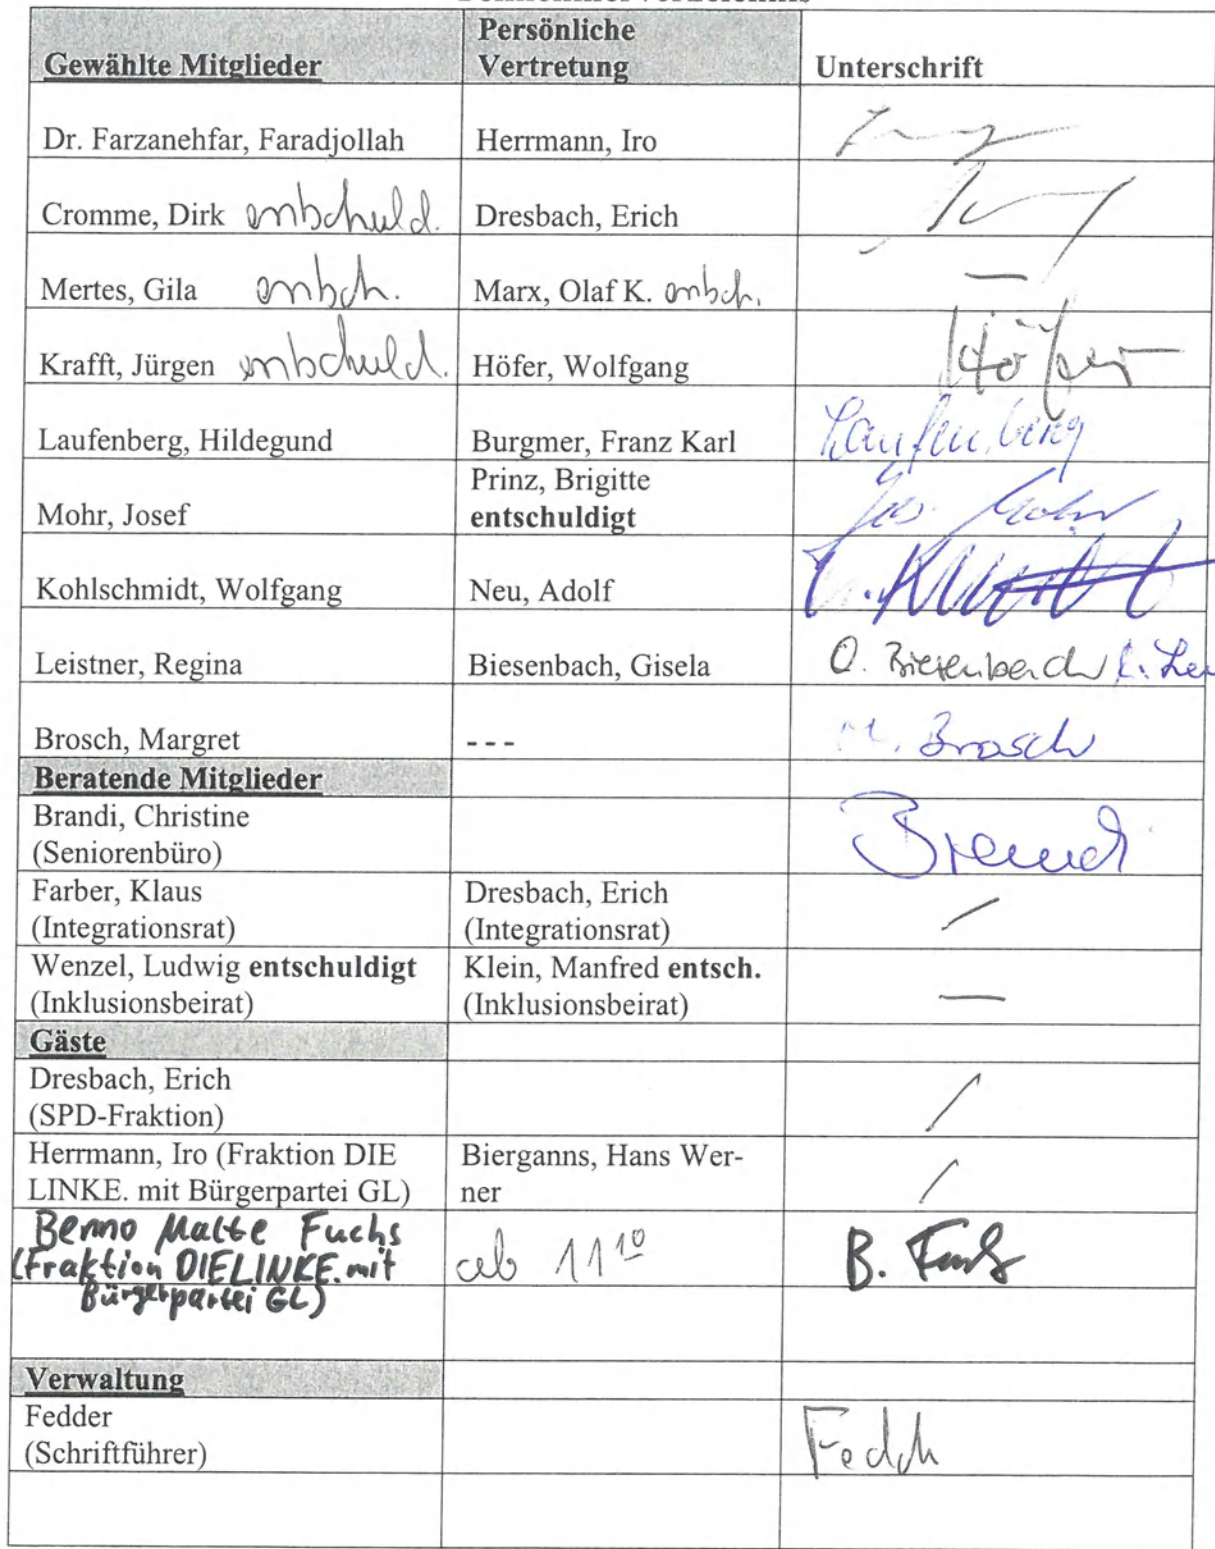 Teilnehmerverzeichnis
Gewählte Mitglieder
Persönliche
Vertretung
Unterschrift
Dr. Farzanehfar, Faradjollah
Herrmann, Iro
Cromme, Dirk entschuld.
Dresbach, Erich
Mertes, Gila entsch.
Marx, Olaf K. entsch.
—
Krafft, Jürgen entschuld.
Höfer, Wolfgang
Höfer
Laufenberg, Hildegund
Burgmer, Franz Karl
Laufenberg
Mohr, Josef
Prinz, Brigitte
entschuldigt
Jos. Mohr
Kohlschmidt, Wolfgang
Neu, Adolf
Leistner, Regina
Biesenbach, Gisela
G. Biesenbach
Brosch, Margret
- - -
M. Brosch
Beratende Mitglieder
Brandi, Christine
(Seniorenbüro)
Brandi
Farber, Klaus
(Integrationsrat)
Dresbach, Erich
(Integrationsrat)
/
Wenzel, Ludwig entschuldigt
(Inklusionsbeirat)
Klein, Manfred entsch.
(Inklusionsbeirat)
—
Gäste
Dresbach, Erich
(SPD-Fraktion)
/
Herrmann, Iro (Fraktion DIE
LINKE. mit Bürgerpartei GL)
Bierganns, Hans Wer-
ner
/
Benno Malte Fuchs
(Fraktion DIE LINKE. mit
Bürgerpartei GL)
ab 11 10
B. Fuchs
Verwaltung
Fedder
(Schriftführer)
Fedder